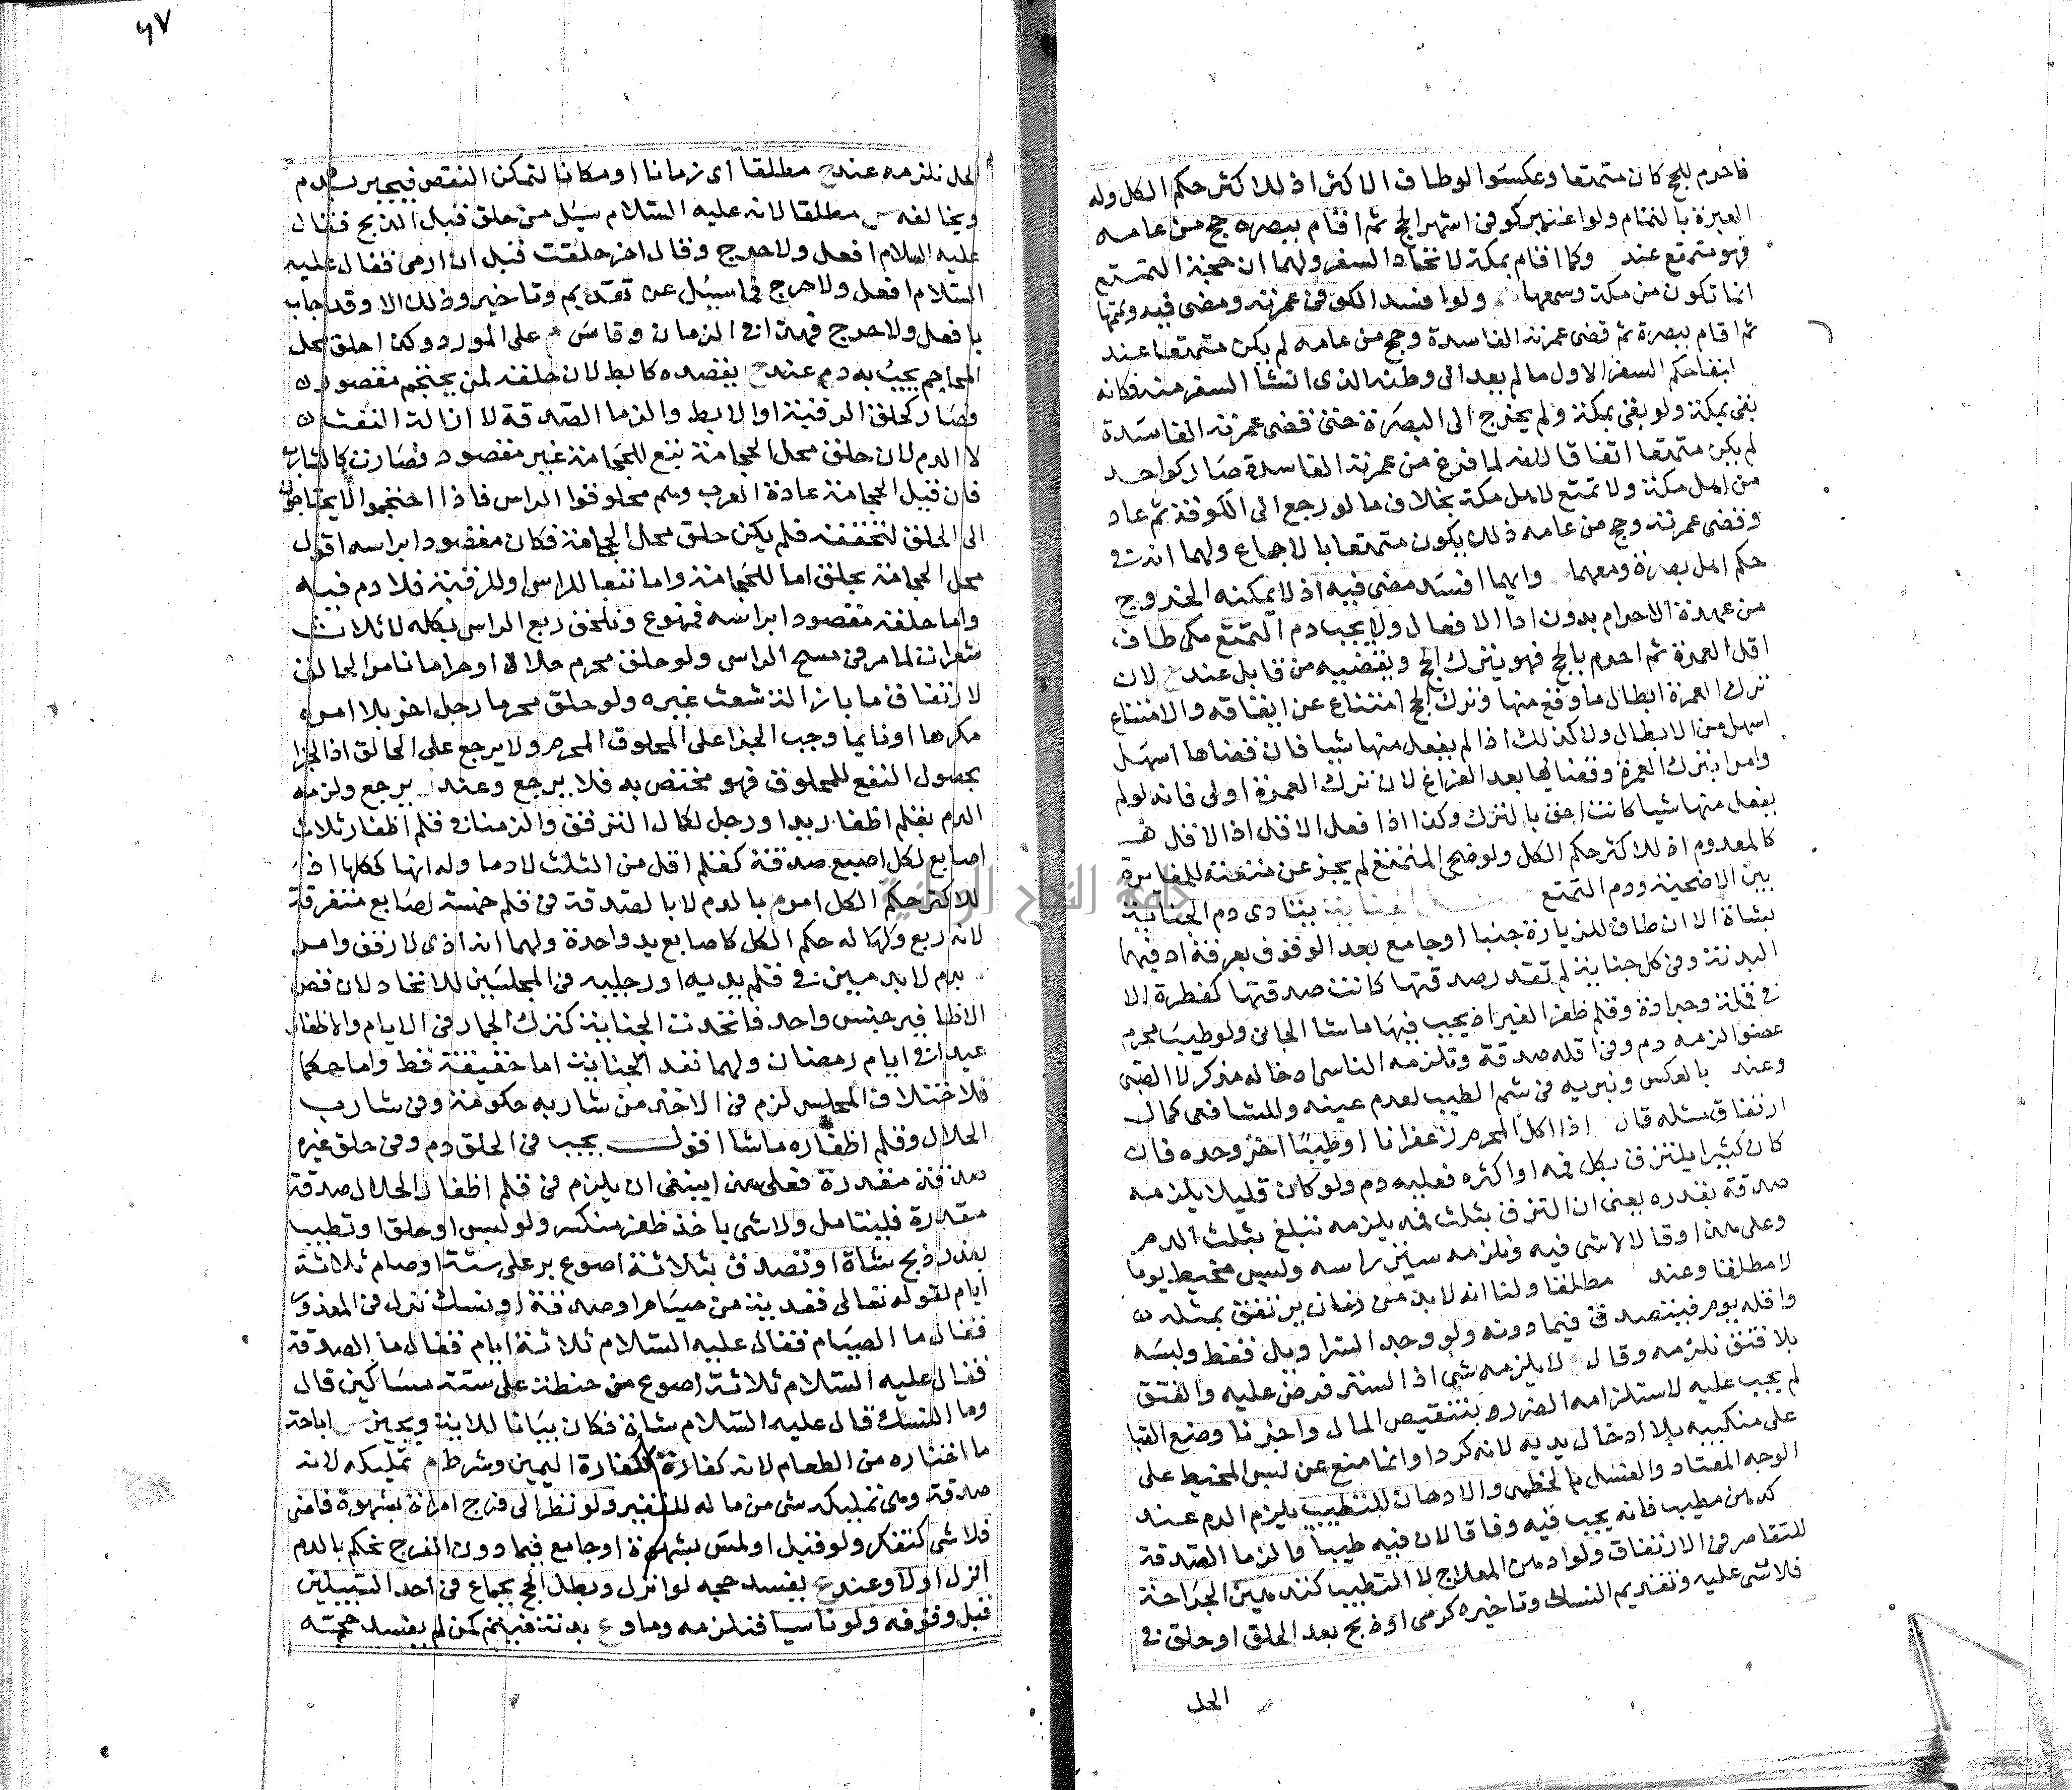 فاحرم للحج كان متمتعا وعكسوا لوطاف الاكثر اذ للاكثر حكم الكل وله
العبرة بالتمام ولو اعتمر كوفى فى اشهر الحج ثم اقام ببصرة حج من عامه
فهو متمتع عند وكما اقام بمكة لاتحاد السفر ولهما ان حجة التمتع
انما تكون من مكة وسمعها ولو افسد الكوفى عمرته ومضى فيه وتمها
ثم اقام ببصرة ثم قضى عمرته الفاسدة وحج من عامه لم يكن متمتعا عند
ابقا حكم السفر الاول ما لم يعد الى وطنه الذى انشأ السفر منه فكانه
بقى بمكة ولو بقى بمكة ولم يخرج الى البصرة حتى قضى عمرته الفاسدة
لم يكن متمتعا اتفاقا لانه لما فرغ من عمرته الفاسدة صار كواحد
من اهل مكة ولا تمتع لاهل مكة بخلاف ما لو رجع الى الكوفة ثم عاد
وقضى عمرته وحج من عامه ذلك يكون متمتعا بالاجماع ولهما انه فى
حكم اهل بصرة ومعهما وايهما افسد مضى فيه اذ لا يمكنه الخروج
من عهدة الاحرام بدون ادا الافعال ولا يجب دم التمتع مكى طاف
اقل العمرة ثم احرم بالحج فهو يترك الحج ويقضيه من قابل عند ح لان
ترك العمرة ابطال ما وقع منها وترك الحج امتناع عن ايقاعه والامتناع
اسهل من الابطال ولا كذلك اذا لم يفعل منها شيا فان قضاها اسهل
وامرا بترك العمرة وقضائها بعد الفراغ لان ترك العمرة اولى فانه لو لم
يفعل منها شيا كانت احق بالترك وكذا اذا فعل الاقل اذ الاقل
كالمعدوم اذ للاكثر حكم الكل ولو ضحى المتمتع لم يجز عن متعته للمغايرة
بين الاضحية ودم التمتع يتادى دم الجناية
بشاة الا ان طاف للزيارة جنبا او جامع بعد الوقوف بعرفة اذ فيهما
البدنة وفى كل جناية لم تقدر صدقتها كانت صدقتها كفطرة الا
فى قملة وجرادة وقلم ظفر الغير اذ يجب فيها ما شا الجانى ولو طيب محرم
عضوا لزمه دم وفى اقله صدقة وتلزمه الناسى ادخاله مذكر لا الصبى
وعند بالعكس ونبريه فى شم الطيب لعدم عينه وللشافعى كمال
ارتفاق مثله قال اذا اكل المحرم زعفرانا او طيبا اخر وحده فان
كان كثيرا يلتزق بكل فمه او اكثره فعليه دم ولو كان قليلا يلزمه
صدقة بقدره يعنى ان التزق بثلث فمه يلزمه تبلغ بثلث الدم
وعلى هذا وقالا لا شى فيه ونلزمه ستر راسه ولبس مخيط يوما
لا مطلقا وعند مطلقا ولنا انه لا بد من زمان يرتفق بمثله
واقله يوم فيتصدق فيما دونه ولو وجد السراويل فقط ولبسه
بلا فتق نلزمه وقال لا يلزمه شى اذ الستر فرض عليه والفتق
لم يجب عليه لاستلزامه الضرر بتنقيص المال واجزنا وضع القبا
على منكبيه بلا ادخال يديه لانه كردا وانما منع عن لبس المخيط على
الوجه المعتاد والغسل بالخطمى والادهان للتطيب يلزم الدم عند
كدهن مطيب فانه يجب فيه وفاقا لان فيه طيبا والزما الصدقة
للتقاصر فى الارتفاق ولو ادهن لعلاج لا التطيب كتدهين الجراحة
فلا شى عليه وتقديم النسك وتاخيره كرمى او ذبح بعد الحلق او حلق فى
الحل
٤٧
الحل نلزمه عند ح مطلقا اى زمانا او مكانا لتمكن النقص فيجبر بدم
ويخالفه س مطلقا لانه عليه السلام سيل من حلق قبل الذبح فقال
عليه السلام افعل ولا حرج وقال اخر حلقت قبل ان ارمى فقال عليه
السلام افعل ولا حرج فما سيل عن تقديم وتاخير وذلك الا وقد اجاب
بافعل ولا حرج فهذا فى الزمان وقاس م على المورد وكذا حلق محل
المحاجم يجب به دم عند ح يقصده كابط لان حلقه لمن يحتجم مقصود
فصار كحلق الرقبة او الابط والزما الصدقة لازالة التفث
لا الدم لان حلق محل الحجامة تبع للحجامة غير مقصود فصارت كالشارب
فان قيل الحجامة عادة العرب وهم محلوقوا الراس فاذا احتجموا لا يحتاجون
الى الحلق لتخففه فلم يكن حلق محل الحجامة فكان مقصودا براسه اقول
محل الحجامة يحلق اما للحجامة واما تبعا للراس او للرقبة فلا دم فيه
واما حلقه مقصودا براسه فممنوع ونلحق ربع الراس بكله لا ثلاث
شعرات لما مر فى مسح الراس ولو حلق محرم حلالا او حراما نامر الحالق
لارتفاق ما بازالة شعث غيره ولو حلق محرما رجل اخر بلا امره
مكرها او نايما وجب الجزا على المحلوق المحرم ولا يرجع على الحالق اذ الجزا
بحصول النفع للمحلوق فهو مختص به فلا يرجع وعند يرجع ولزمه
الدم بقلم اظفار يد او رجل لكمال الترفق والزمنا فى قلم اظفار ثلاث
اصابع لكل اصبع صدقة كقلم اقل من الثلث لا دما وله انها ككلها اذ
للاكثر حكم الكل امر م بالدم لا بالصدقة فى قلم خمسة اصابع متفرقة
لانه ربع وكلها له حكم الكل كاصابع يد واحدة ولهما انه اذى لا رفق وامر
بدم لا بدمين فى قلم يديه او رجليه فى المجلسين للاتحاد لان قص
الاظافير جنس واحد فاتحدت الجناية كترك الجمار فى الايام والافطار
عمدا فى ايام رمضان ولهما تعدد الجنايت اما حقيقة فقط واما حكما
فلاختلاف المجلس لزم فى الاخذ من شاربه حكومة وفى شارب
الحلال وقلم اظفاره ما شا اقول يجب فى الحلق دم وفى حلق غيره
صدقة مقدرة فعلى هذا ينبغى ان يلزم فى قلم اظفار الحلال صدقة
مقدرة فليتامل ولا شى باخذ ظفر منكسر ولو لبس او حلق او تطيب
بعذر ذبح شاة او تصدق بثلاثة اصوع بر على ستة او صام ثلاثة
ايام لقوله تعالى ففدية من صيام او صدقة او نسك نزل فى المعذور
فقال ما الصيام فقال عليه السلام ثلاثة ايام فقال ما الصدقة
فقال عليه السلام ثلاثة اصوع من حنطة على ستة مساكين قال
وما النسك قال عليه السلام شاة فكان بيانا للاية ويجيز س اباحة
ما اختاره من الطعام لانه كفارة ككفارة اليمين وشرط م تمليكه لانه
صدقة وهى تمليك شى من ماله للفقير ولو نظر الى فرج امراة بشهوة فامنى
فلا شى كتفكر ولو قبل او لمس بشهوة او جامع فيما دون الفرج نحكم بالدم
انزل او لا وعند ع يفسد حجه لو انزل ويبطل الحج بجماع فى احد السبيلين
قبل وقوفه ولو ناسيا فنلزمه دما وع بدنة فيهتم كمن لم يفسد حجته